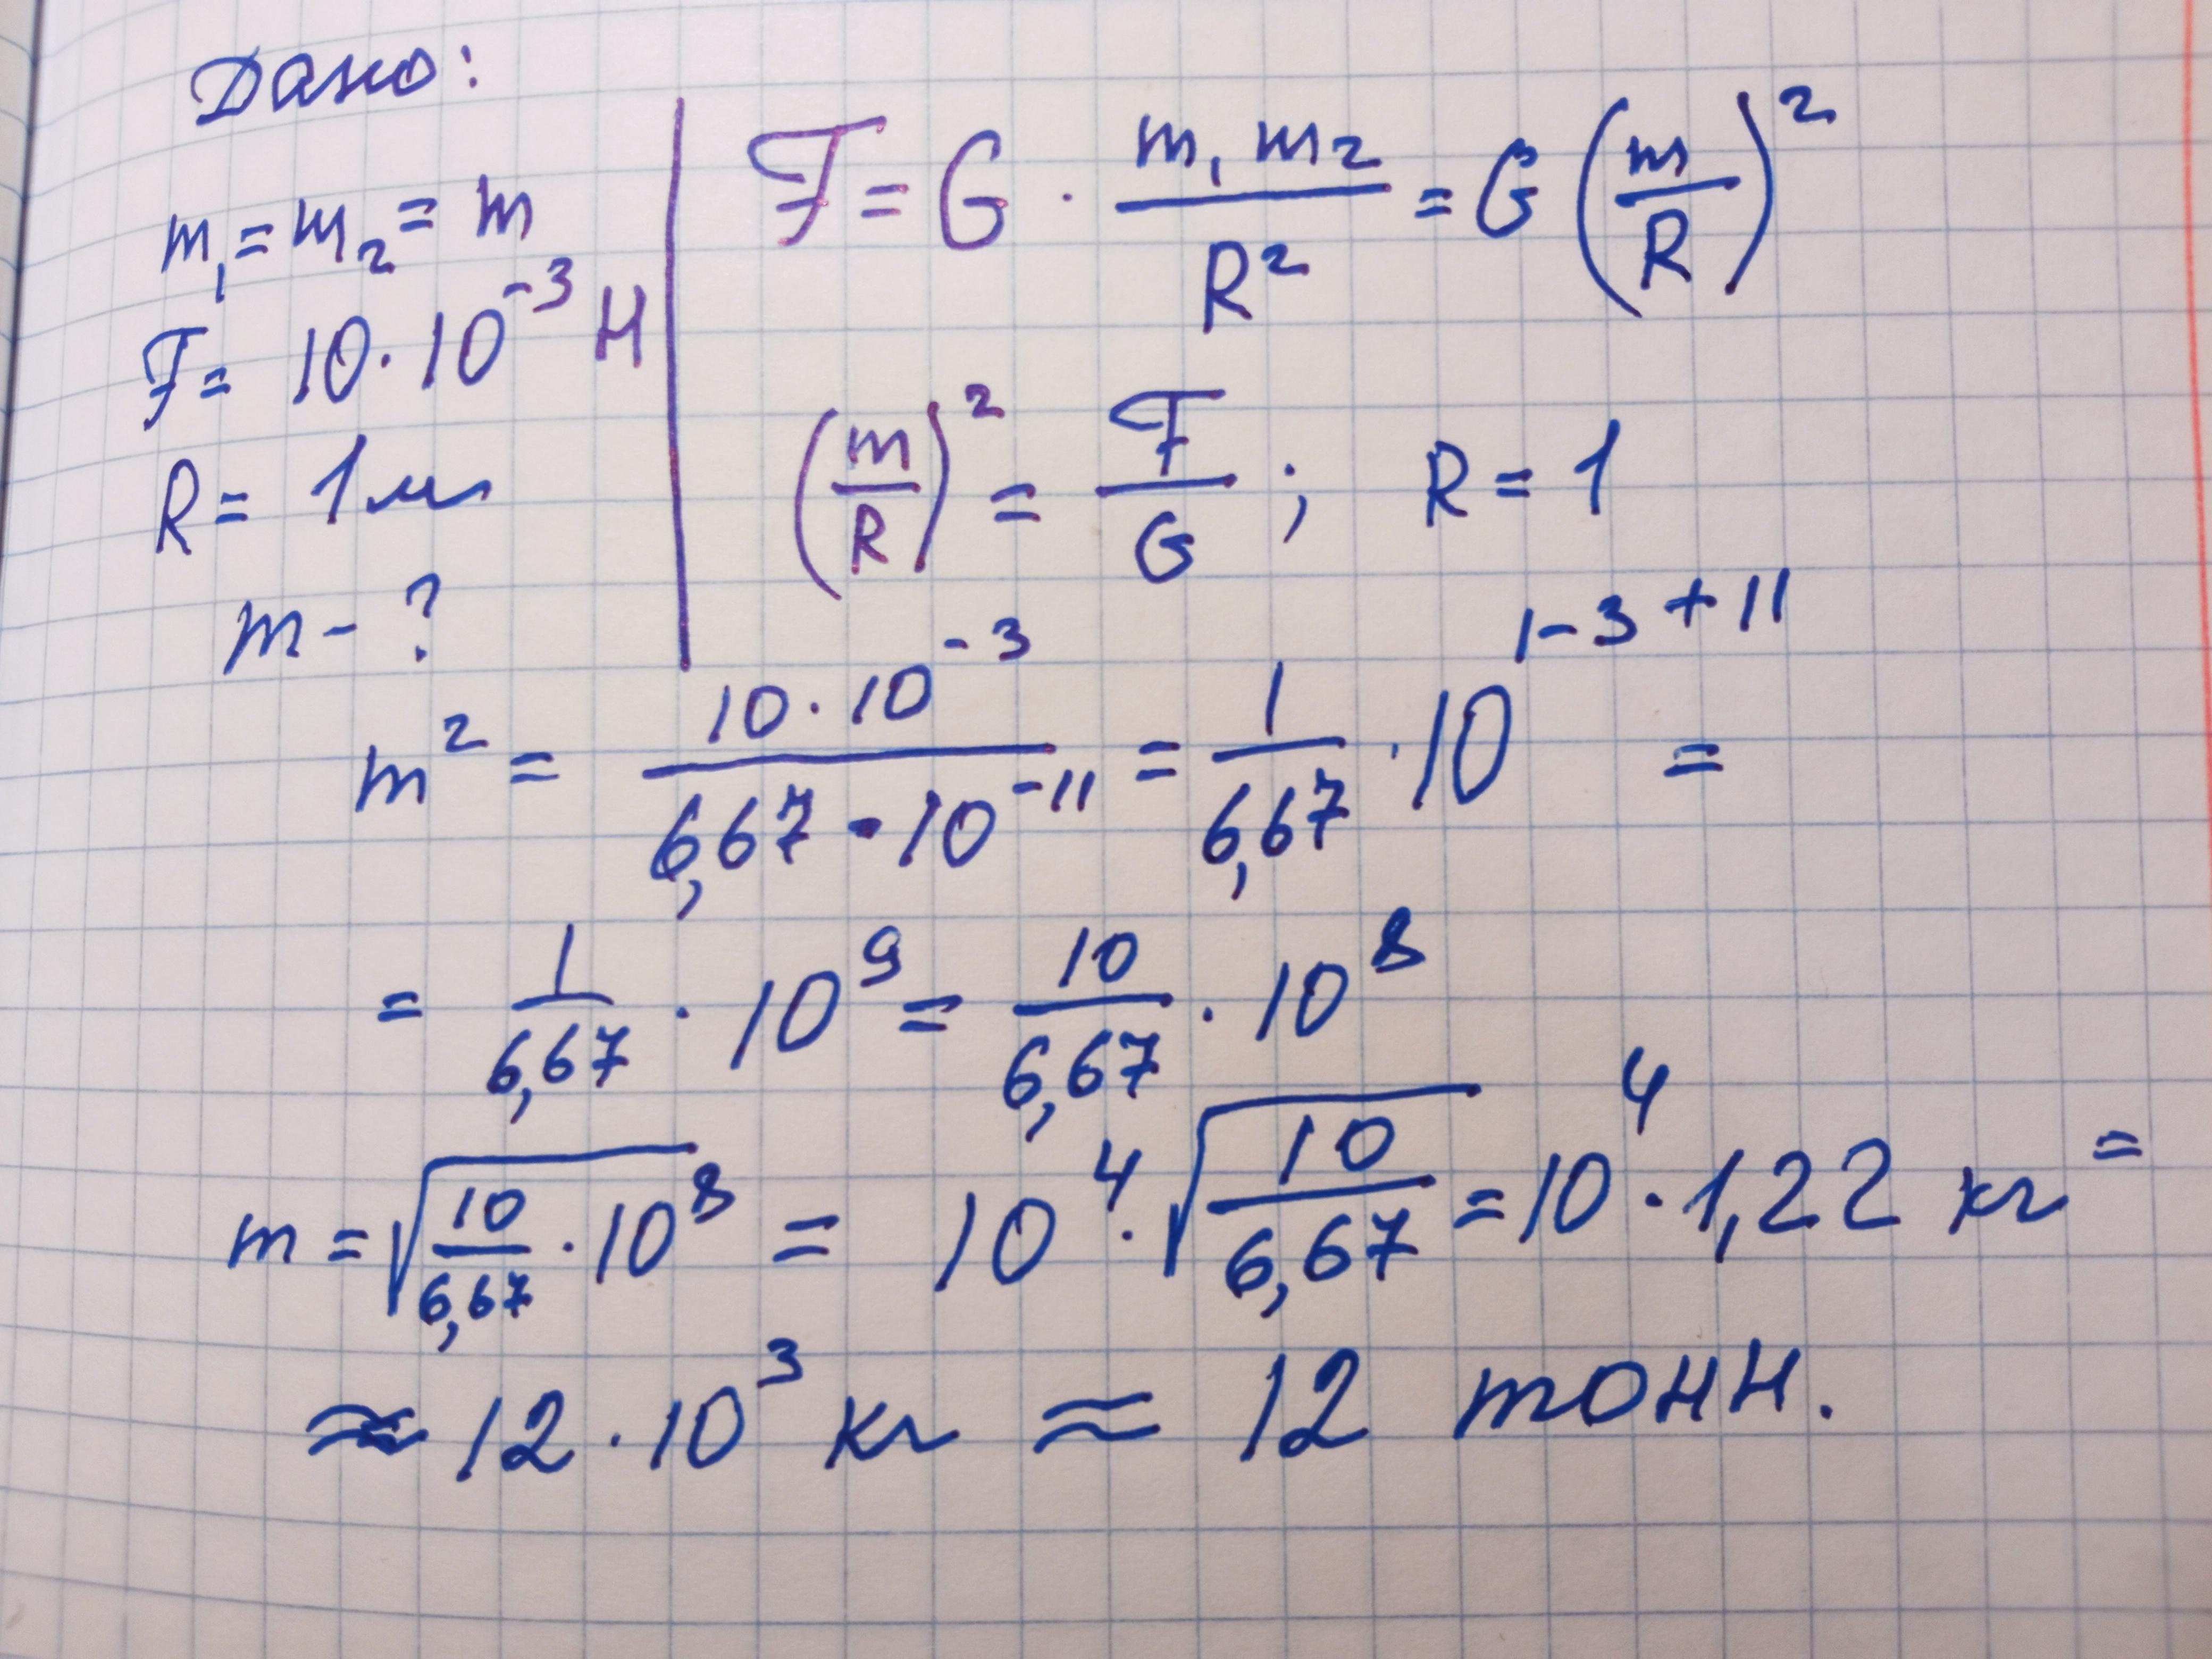 Дано:
m₁ = m₂ = m
F = 10 · 10⁻³ Н
R = 1 м
m - ?
F = G · m₁ m₂ / R² = G (m / R)²
(m / R)² = F / G ; R = 1
m² = 10 · 10⁻³ / 6,67 · 10⁻¹¹ = 1 / 6,67 · 10¹⁻³⁺¹¹ =
= 1 / 6,67 · 10⁹ = 10 / 6,67 · 10⁸
m = √(10 / 6,67 · 10⁸) = 10⁴ · √(10 / 6,67) = 10⁴ · 1,22 кг =
≈ 12 · 10³ кг ≈ 12 тонн.